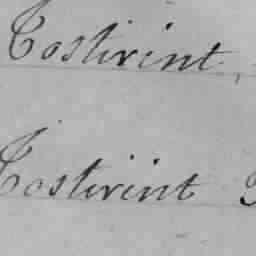 Costivint
Costivint